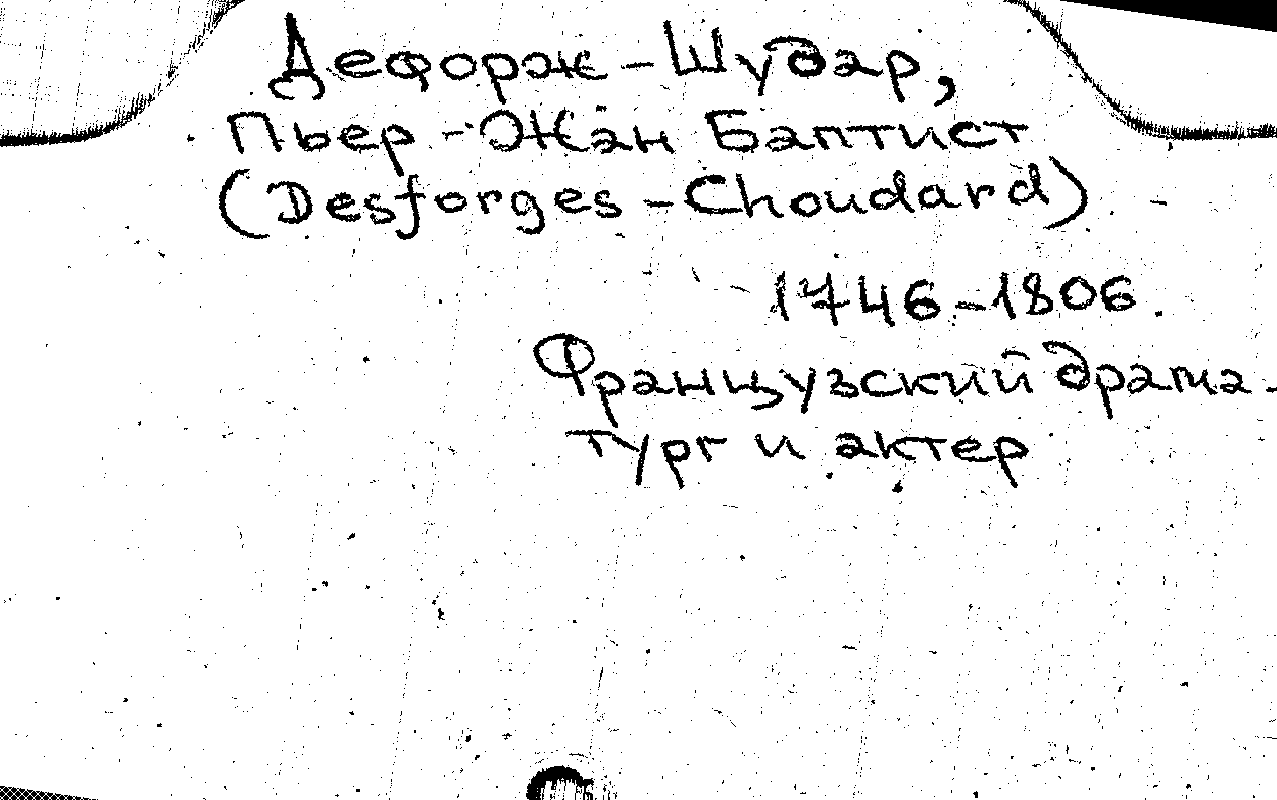 Дефорж - Шудар,
Пьер - Жан Баптист
(Desforges - Choudard)
1746 - 1806.
Французский драма-
тург и актер